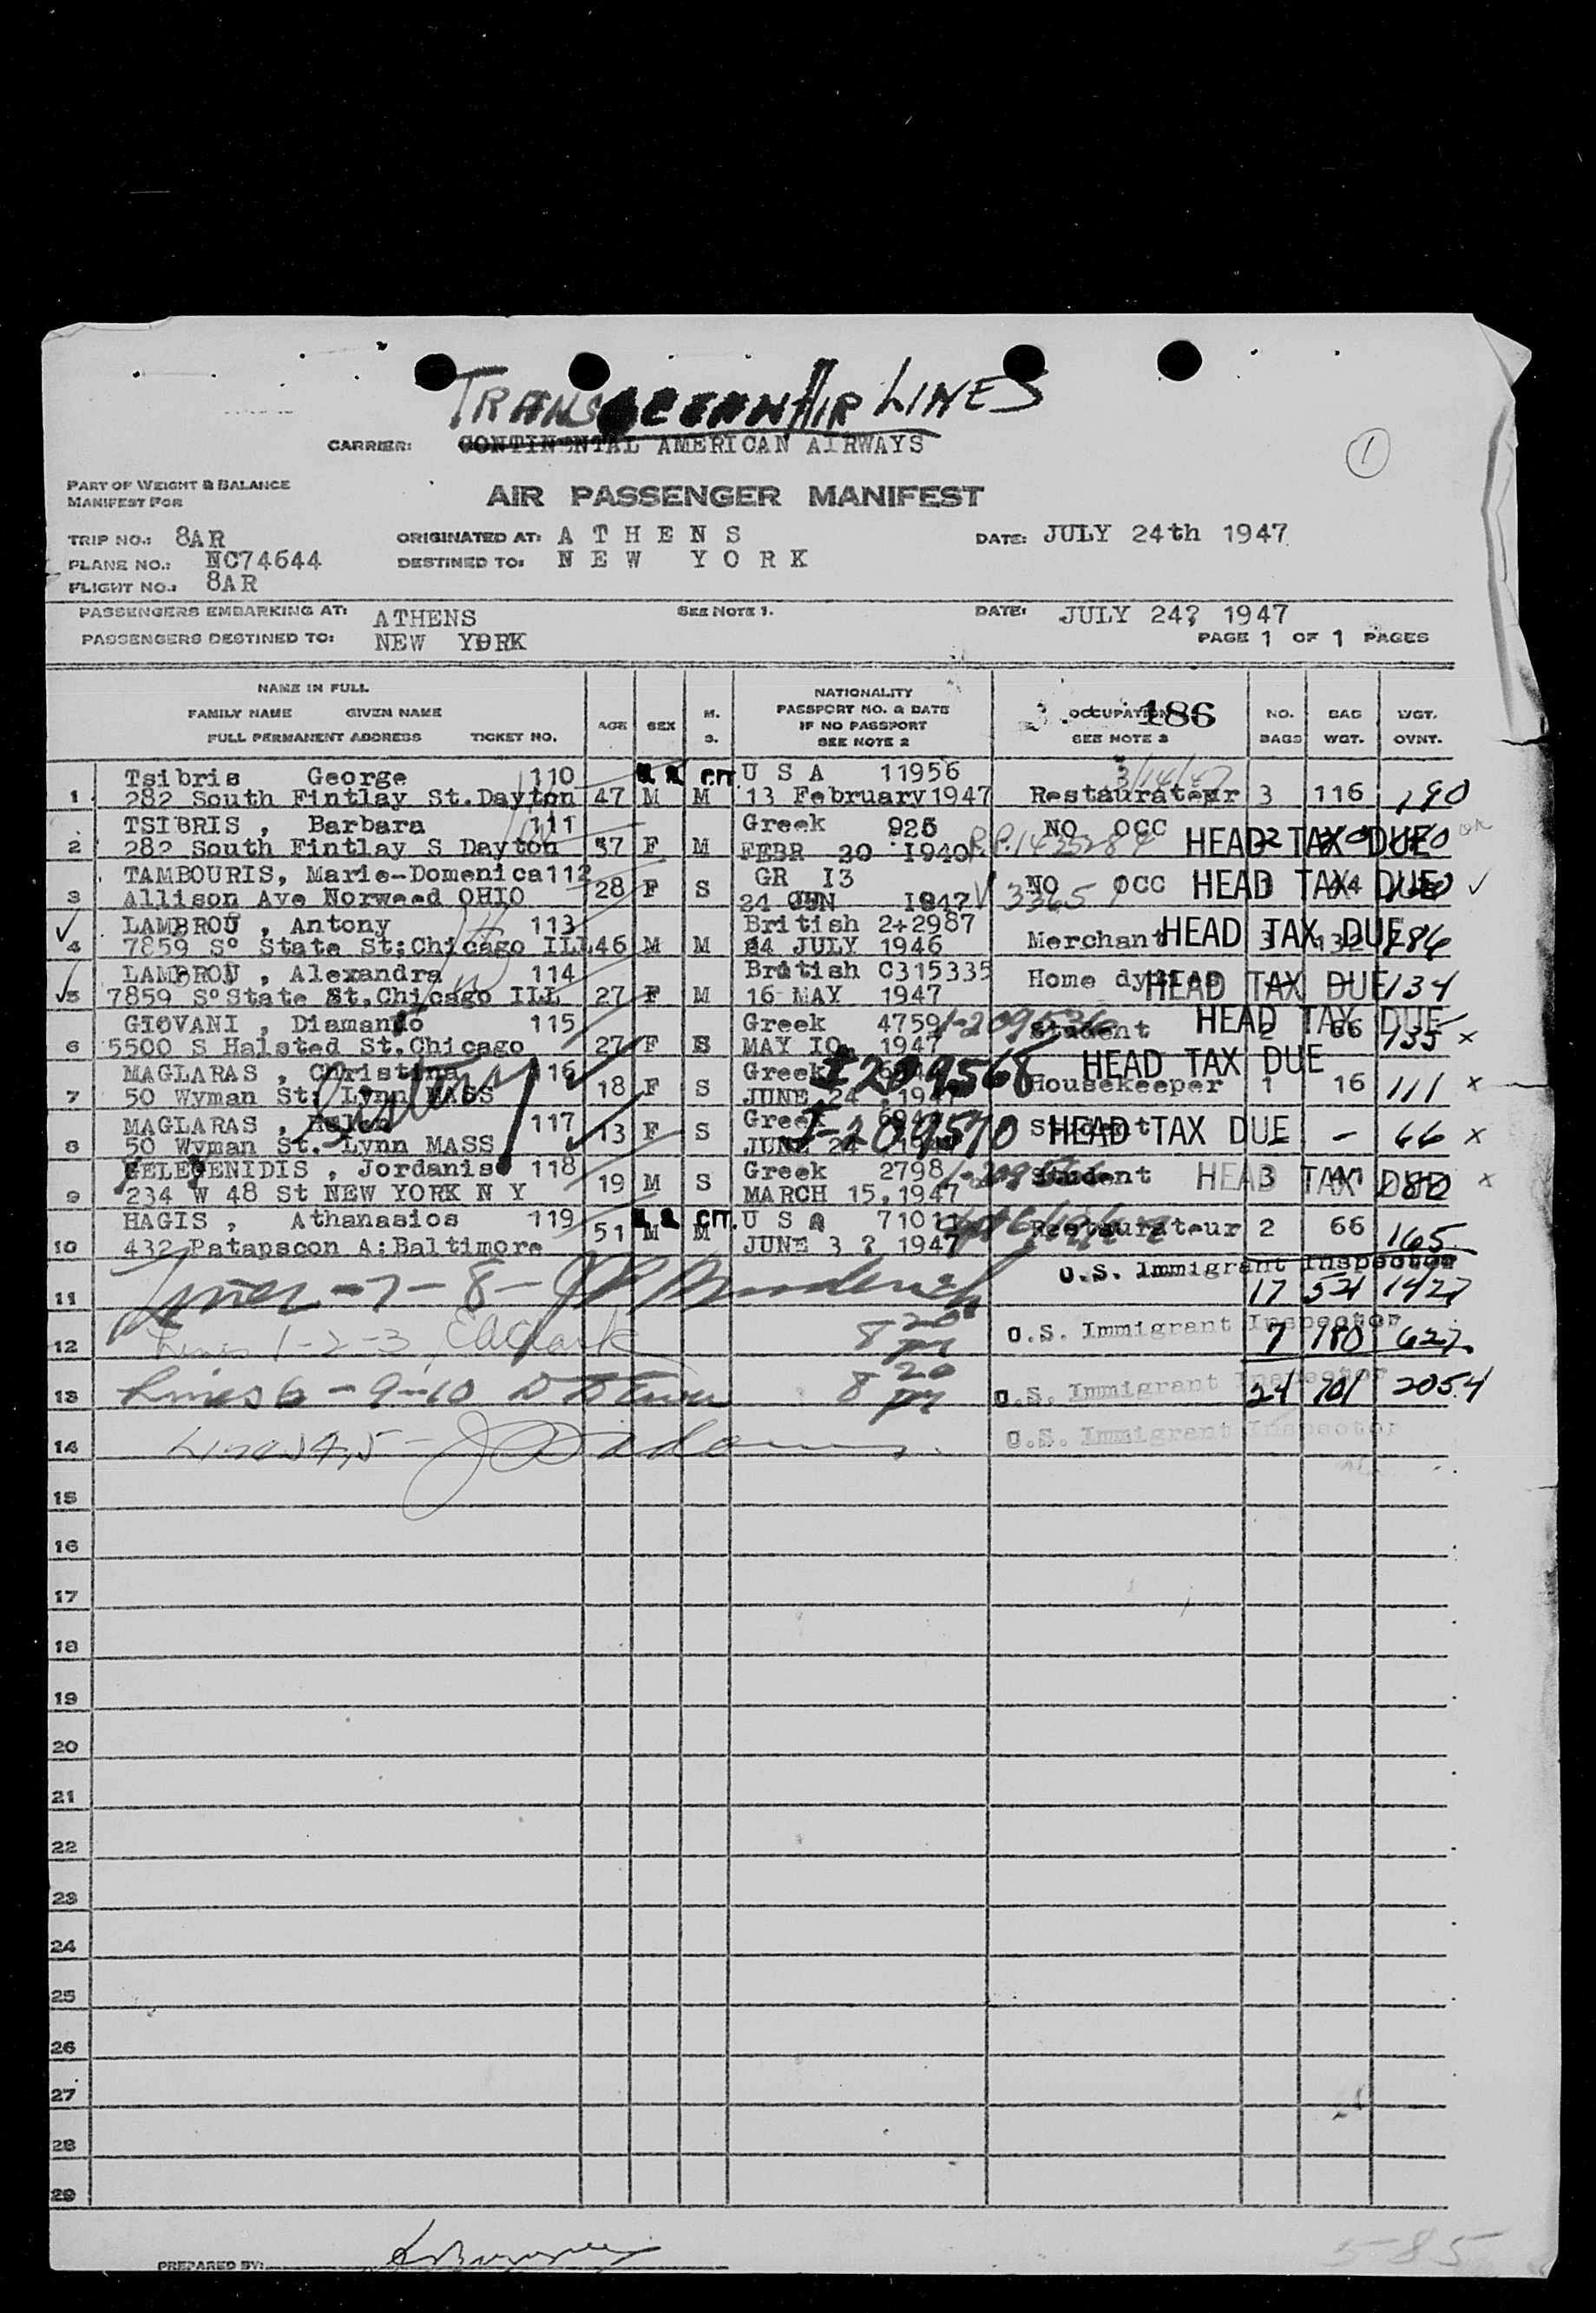 TRANSOCEAN AIR LINES
CARRIER: CONTINENTAL AMERICAN AIRWAYS
1
PART OF WEIGHT & BALANCE
MANIFEST FOR
AIR PASSENGER MANIFEST
TRIP NO.: 8AR ORIGINATED AT: A T H E N S DATE: JULY 24th 1947
PLANE NO.: NC74644 DESTINED TO: N E W Y O R K
FLIGHT NO.: 8AR
PASSENGERS EMBARKING AT: ATHENS SEE NOTE 1. DATE: JULY 24? 1947
PASSENGERS DESTINED TO: NEW YORK PAGE 1 OF 1 PAGES
NAME IN FULL
FAMILY NAME GIVEN NAME
FULL PERMANENT ADDRESS TICKET NO.
AGE
SEX
M.
S.
NATIONALITY
PASSPORT NO. & DATE
IF NO PASSPORT
SEE NOTE 2
OCCUPATION 186
SEE NOTE 3
NO.
BAGS
BAG
WGT.
WGT.
OVNT.
Tsibris George 110 CIT. U S A 11956
1 282 South Fintlay St.Dayton 47 M M 13 February 1947 Restaurateur 3 116 190
TSIBRIS , Barbara 111 Greek 925 NO OCC HEAD TAX DUE
2 282 South Fintlay S Dayton 37 F M FEBR 20 1940
TAMBOURIS, Marie-Domenica 112 GR I3 NO OCC HEAD TAX DUE
3 Allison Ave Norweed OHIO 28 F S 24 JUN 1947 3365
LAMBROU , Antony 113 British 2+2987
4 7859 S° State St;Chicago ILL 46 M M 24 JULY 1946 Merchant HEAD TAX DUE 286
LAMBROU , Alexandra 114 British C315335 Home dyties
5 7859 S° State St.Chicago ILL 27 F M 16 MAY 1947 HEAD TAX DUE 134
GIOVANI , Diamando 115 Greek 4759 Student HEAD TAX DUE
6 5500 S Halsted St.Chicago 27 F S MAY IO, 1947 2 66 135 x
MAGLARAS , Christina 116 Greek I 209568 HEAD TAX DUE
7 50 Wyman St; Lynn MASS 18 F S JUNE 24 ,1947 Housekeeper 1 16 111 x
MAGLARAS , Helen 117 Greek I-209570 Student HEAD TAX DUE
8 50 Wyman St.-Lynn MASS 13 F S JUNE 24 - - 66 x
SELEVENIDIS , Jordanis 118 Greek 2798 Student HEAD TAX DUE
9 234 W 48 St NEW YORK N Y 19 M S MARCH 15,1947 3 180 x
HAGIS , Athanasios 119 CIT. U S A 71011 Restaurateur 2 66 165
10 432 Patapscon A:Baltimore 51 M M JUNE 3 ? 1947
U.S. Immigrant Inspector
11 Lines -7-8- 17 521 1427
12 Lines 1-2-3, EAClark 8 20 pm U.S. Immigrant Inspector 7 180 627
13 Lines 6-9-10 8 20 pm U.S. Immigrant Inspector 24 701 2054
14 Lines 4,5- U.S. Immigrant Inspector
15
16
17
18
19
20
21
22
23
24
25
26
27
28
29
PREPARED BY:
585